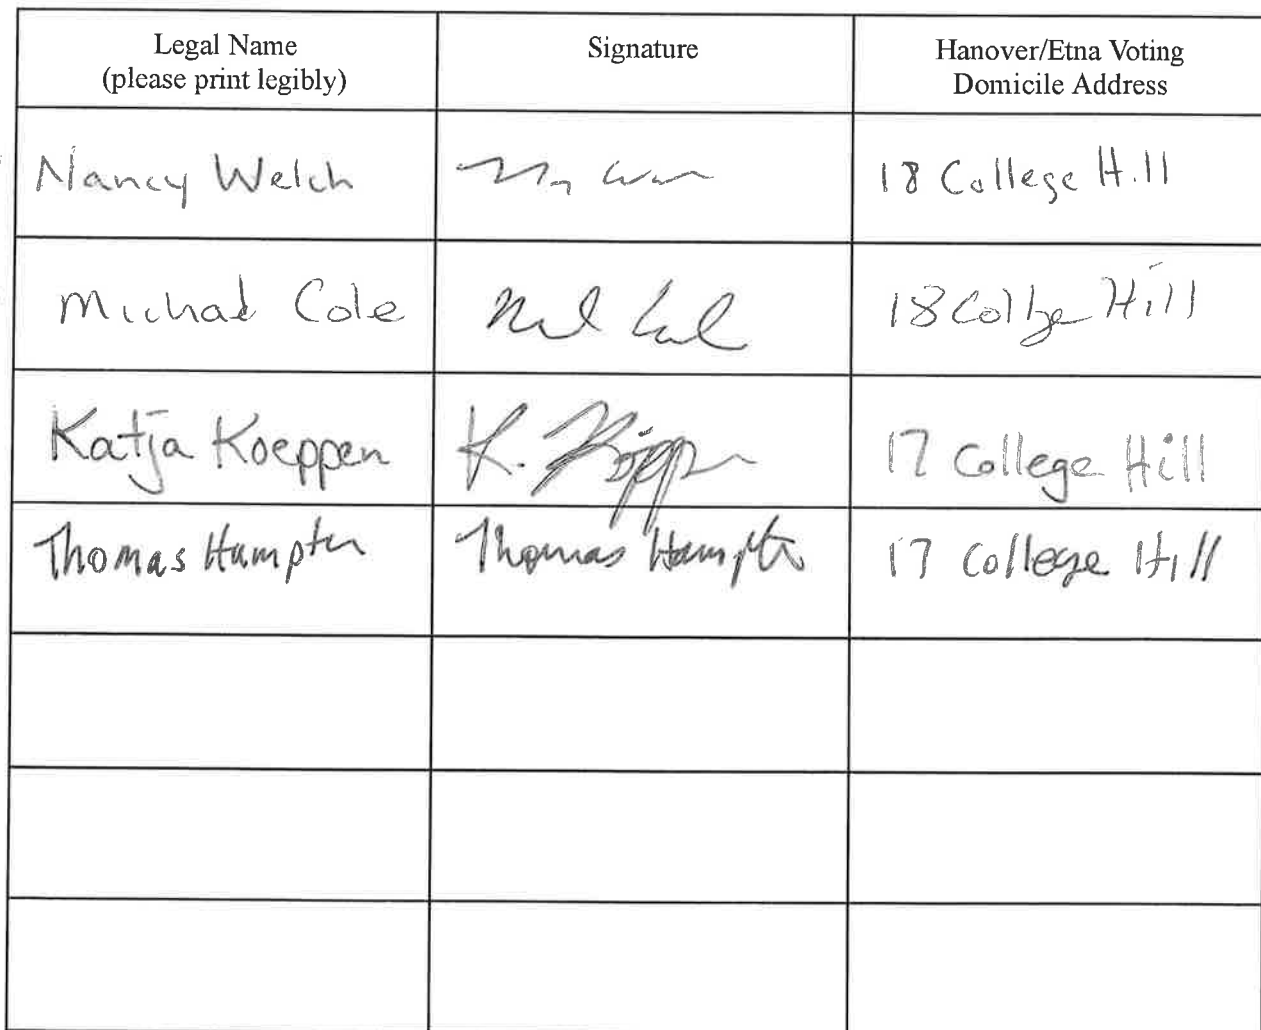 Legal Name
(please print legibly)
Signature
Hanover/Etna Voting
Domicile Address
Nancy Welch
18 College Hill
Michael Cole
18 College Hill
Katja Koeppen
K. Köpp
17 College Hill
Thomas Hampton
Thomas Hampton
17 College Hill